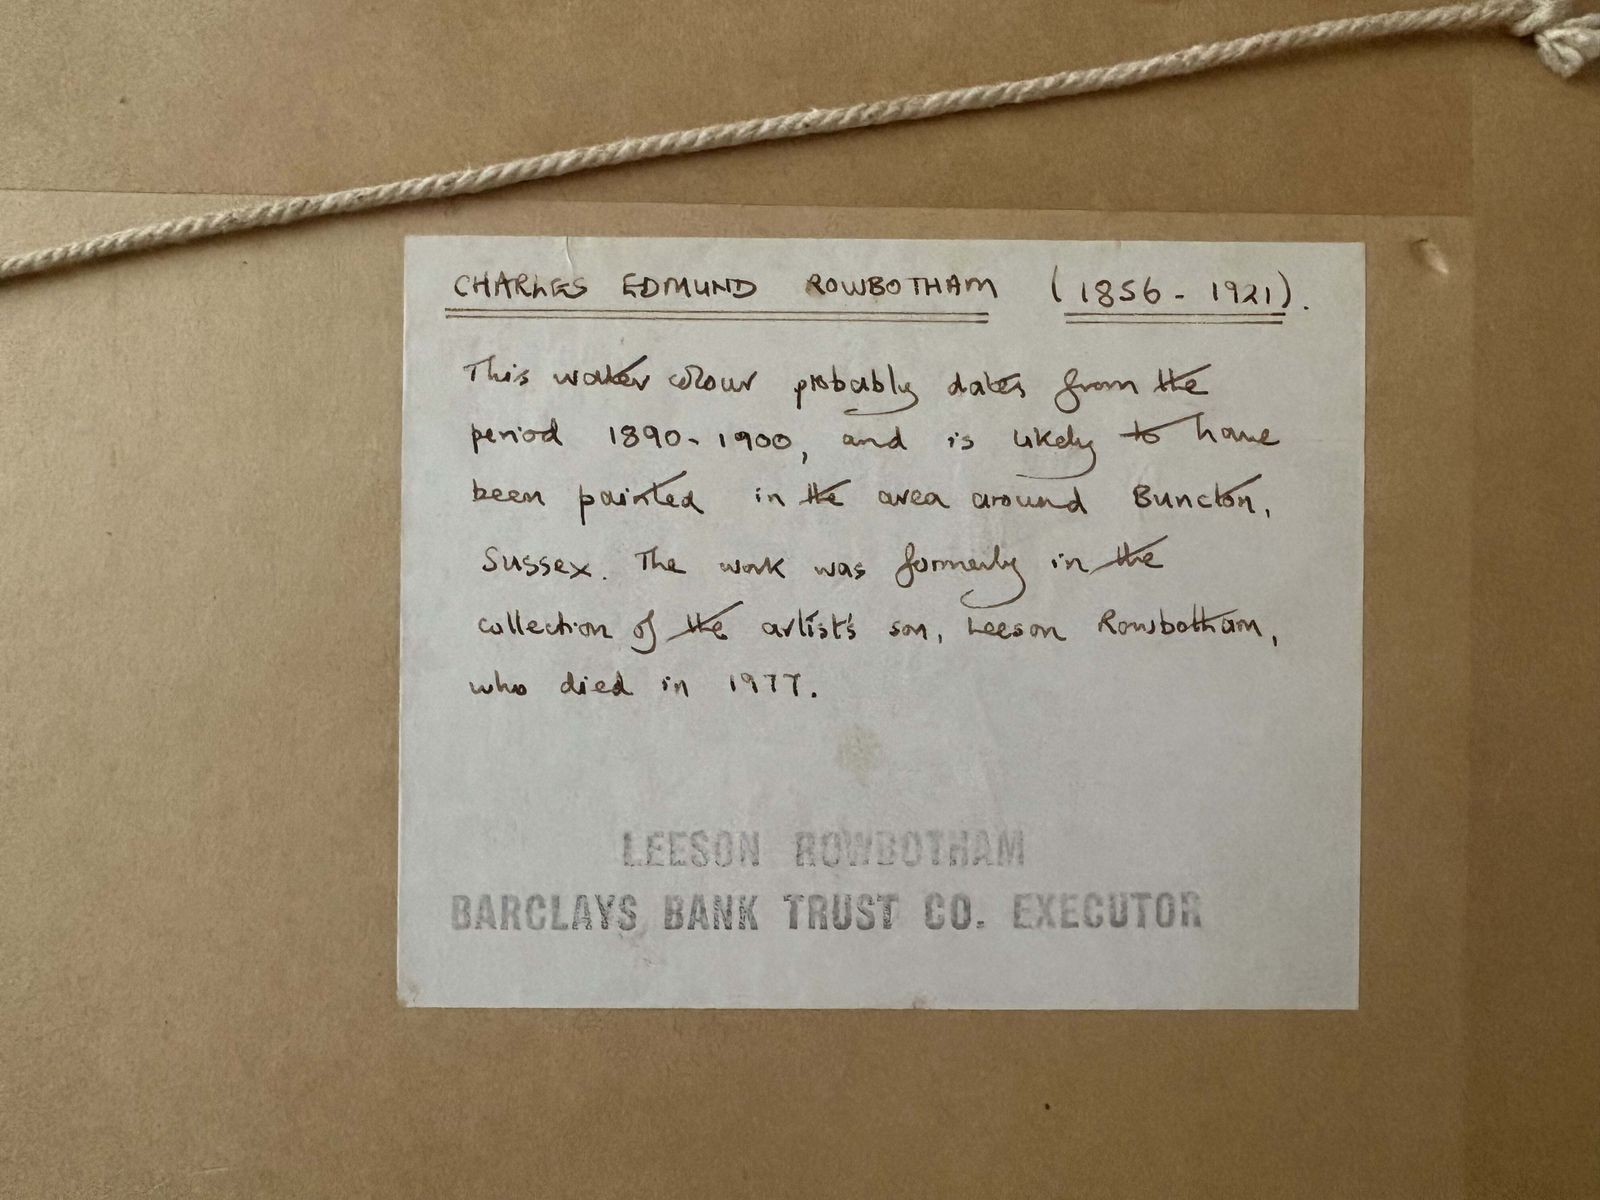 CHARLES EDMUND ROWBOTHAM (1856 - 1921).
This water colour probably dates from the
period 1890-1900, and is likely to have
been painted in the area around Buncton,
Sussex. The work was formerly in the
collection of the artist's son, Leeson Rowbotham,
who died in 1977.
LEESON ROWBOTHAM
BARCLAYS BANK TRUST CO. EXECUTOR